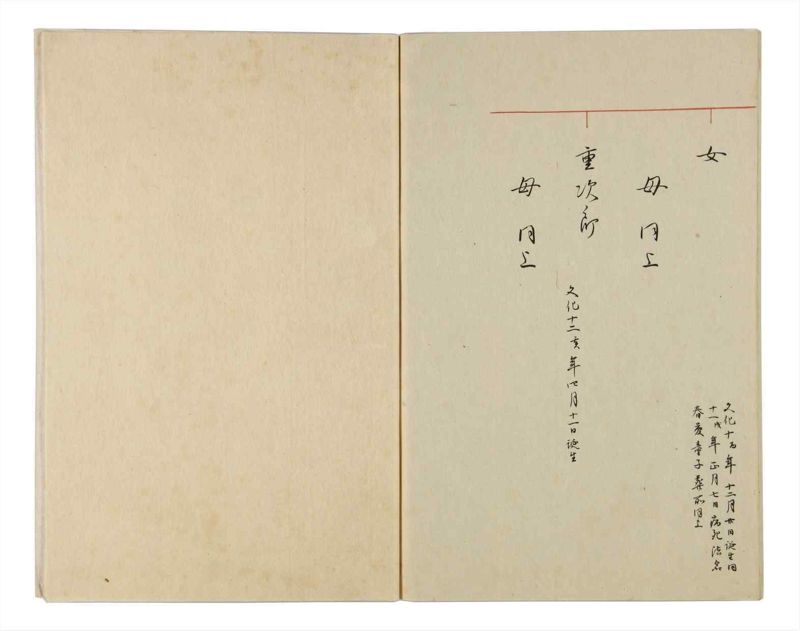 女
文化十酉年十二月廿日誕生同
十一戌年正月七日病死法名
春童子葬所同上
母同上
重次郎
文化十二亥年四月十一日誕生
母同上